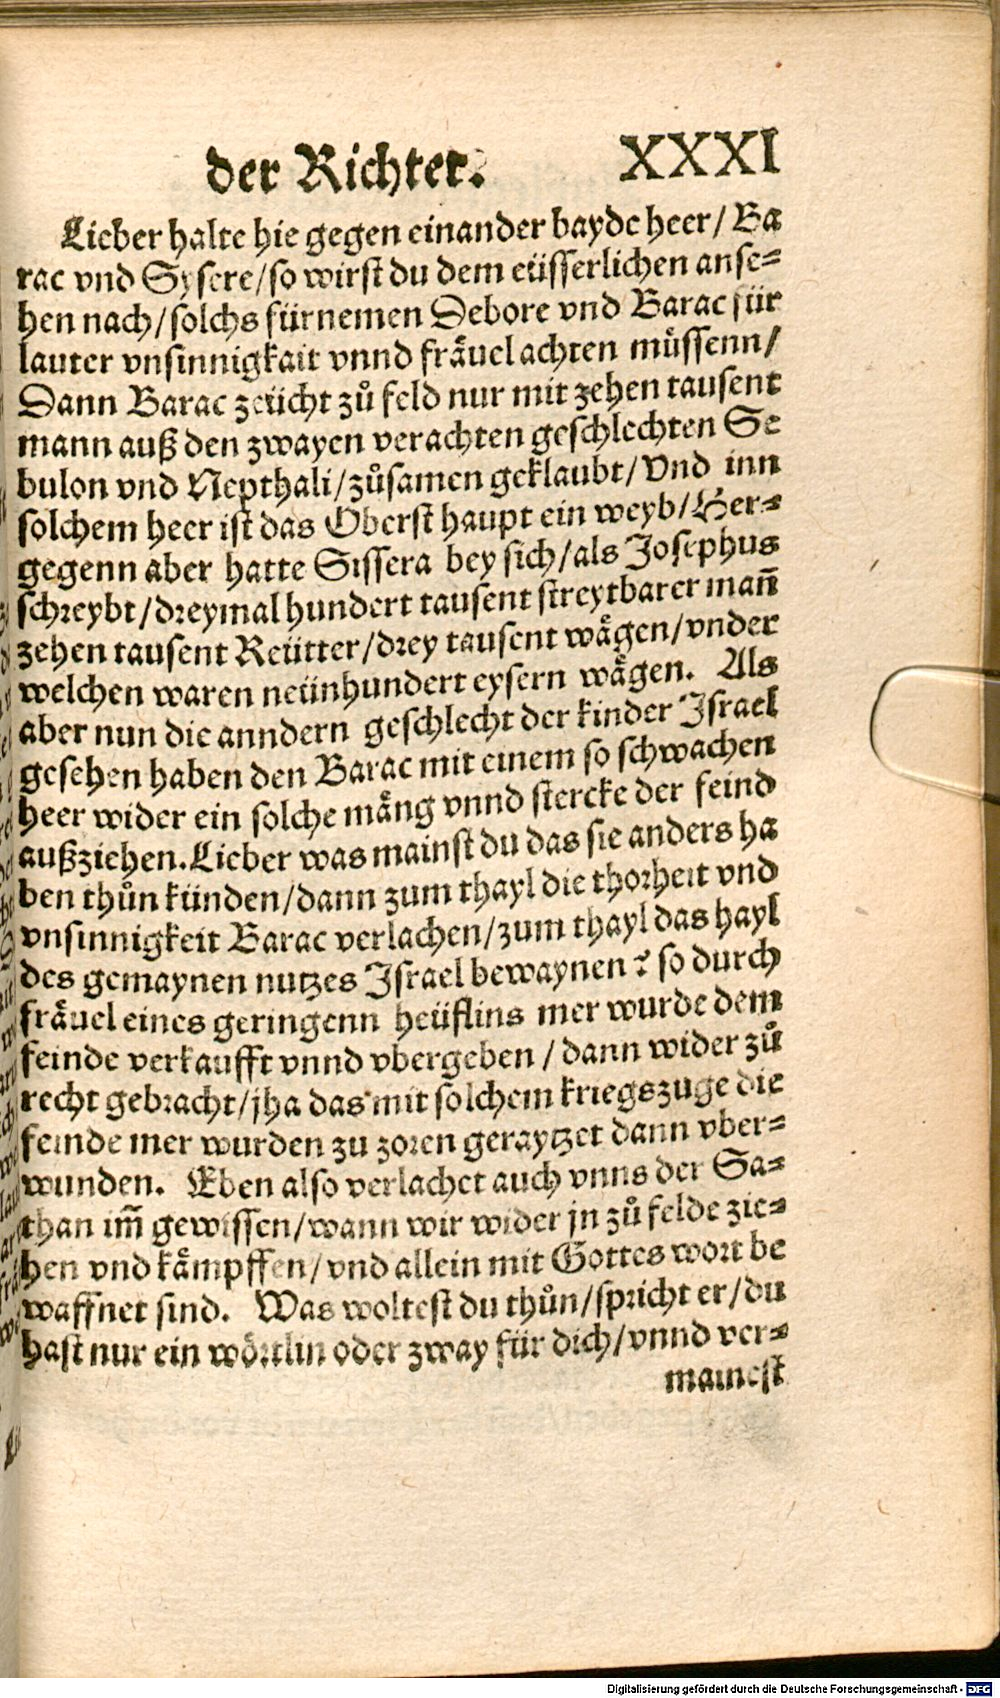 der Richter. XXXI
Lieber halte hie gegen einander bayde heer/ Ba
rac vnd Sysere/so wirst du dem eüsserlichen anse-
hen nach/solchs fürnemen Debore vnd Barac für
lauter vnsinnigkait vnnd fräuel achten müssenn/
Dann Barac zeücht zů feld nur mit zehen tausent
mann auß den zwayen verachten geschlechten Se
bulon vnd Nepthali/zůsamen geklaubt/Vnd inn
solchem heer ist das Oberst haupt ein weyb/Her-
gegenn aber hatte Sissera bey sich/als Josephus
schreybt/dreymal hundert tausent streytbarer mañ
zehen tausent Reütter/drey tausent wägen/vnder
welchen waren neünhundert eysern wägen. Als
aber nun die anndern geschlecht der kinder Israel
gesehen haben den Barac mit einem so schwachen
heer wider ein solche mäng vnnd stercke der feind
außziehen.Lieber was mainst du das sie anders ha
ben thůn künden/dann zum thayl die thorheit vnd
vnsinnigkeit Barac verlachen/zum thayl das hayl
des gemaynen nutzes Israel bewaynen? so durch
fräuel eines geringenn heüflins mer wurde dem
feinde verkaufft vnnd vbergeben/dann wider zů
recht gebracht/jha das mit solchem kriegszuge die
feinde mer wurden zu zoren geraytzet dann vber-
wunden. Eben also verlachet auch vnns der Sa-
than im̃ gewissen/wann wir wider jn zů felde zie-
hen vnd kämpffen/vnd allein mit Gottes wort be
waffnet sind. Was woltest du thůn/spricht er/du
hast nur ein wörtlin oder zway für dich/vnnd ver-
mainest
Digitalisierung gefördert durch die Deutsche Forschungsgemeinschaft - DFG